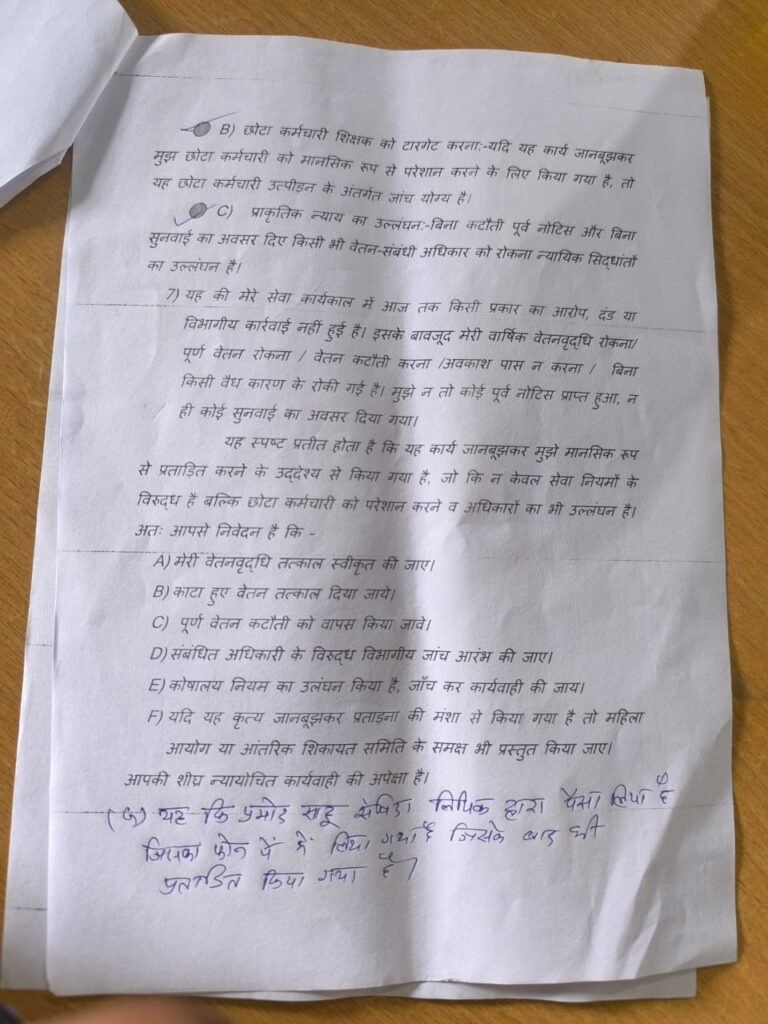 B) छोटा कर्मचारी शिक्षक को टारगेट करना:-यदि यह कार्य जानबूझकर
मुझ छोटा कर्मचारी को मानसिक रूप से परेशान करने के लिए किया गया है, तो
यह छोटा कर्मचारी उत्पीड़न के अंतर्गत जांच योग्य है।
C) प्राकृतिक न्याय का उल्लंघन:-बिना कटौती पूर्व नोटिस और बिना
सुनवाई का अवसर दिए किसी भी वेतन-संबंधी अधिकार को रोकना न्यायिक सिद्धांतों
का उल्लंघन है।
7) यह की मेरे सेवा कार्यकाल में आज तक किसी प्रकार का आरोप, दंड या
विभागीय कार्रवाई नहीं हुई है। इसके बावजूद मेरी वार्षिक वेतनवृद्धि रोकना/
पूर्ण वेतन रोकना / वेतन कटौती करना /अवकाश पास न करना / बिना
किसी वैध कारण के रोकी गई है। मुझे न तो कोई पूर्व नोटिस प्राप्त हुआ, न
ही कोई सुनवाई का अवसर दिया गया।
यह स्पष्ट प्रतीत होता है कि यह कार्य जानबूझकर मुझे मानसिक रूप
से प्रताड़ित करने के उद्देश्य से किया गया है, जो कि न केवल सेवा नियमों के
विरुद्ध है बल्कि छोटा कर्मचारी को परेशान करने व अधिकारों का भी उल्लंघन है।
अतः आपसे निवेदन है कि -
A) मेरी वेतनवृद्धि तत्काल स्वीकृत की जाए।
B) काटा हुए वेतन तत्काल दिया जाये।
C) पूर्ण वेतन कटौती को वापस किया जावे।
D) संबंधित अधिकारी के विरुद्ध विभागीय जांच आरंभ की जाए।
E) कोषालय नियम का उलंघन किया है, जाँच कर कार्यवाही की जाय।
F) यदि यह कृत्य जानबूझकर प्रताड़ना की मंशा से किया गया है तो महिला
आयोग या आंतरिक शिकायत समिति के समक्ष भी प्रस्तुत किया जाए।
आपकी शीघ्र न्यायोचित कार्यवाही की अपेक्षा है।
यह कि प्रमोद साहू लिपिक द्वारा पैसा लिया है
जिसका फोन पे में लिया गया है जिसके बाद भी
प्रताडित किया गया है।